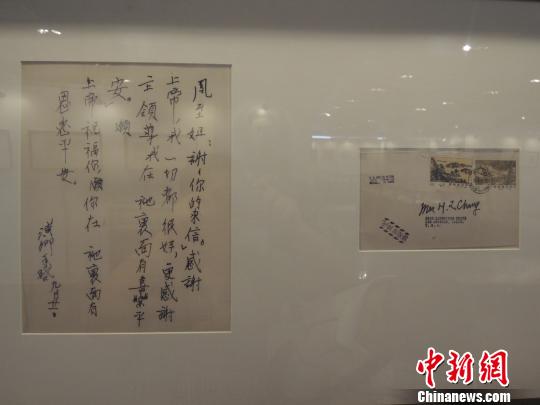 凤至姐:謝々你的來信。感謝
上帝,我一切都很好,更感謝
主領導我在祂裏面有喜樂平
安。願
上帝祝福你,願你在祂裏面有
恩惠平安。
漢卿
Mrs H. L. Chang
U.S.A.
中新网
Chinanews.com